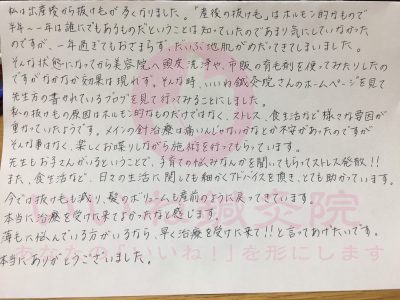 私は出産後から抜け毛が多くなりました。「産後の抜け毛」はホルモン的なもので
半年〜一年は誰にでもあるものだということは知っていたのであまり気にしていなかった
のですが、一年過ぎてもおさまらず、だいぶ地肌がめだってきてしまいました。
そんな状態になってから美容院へ頭皮洗浄や、市販の育毛剤を使ってみたりしたの
ですがなかなか効果は現れず。そんな時、いいね鍼灸院さんのホームページを見て
先生方の書かれているブログを見て行ってみることにしました。
私の抜け毛の原因はホルモン的なものだけではなく、ストレス、食生活など様々な要因が
重なっていたようです。メインの針治療は痛いんじゃないかなとか不安があったのですが
そんな事はなく、楽しくお喋りしながら施術を行ってもらっています。
先生もお子さんがいるということで、子育ての悩みなんかを聞いてもらってストレス発散!!
また、食生活など、日々の生活に関しても細かくアドバイスを頂き、とても助かっています。
今では抜け毛も減り、髪のボリュームも産前のように戻ってきています。
本当に治療を受けに来てよかったなと感じます。
薄毛に悩んでいる方がいるなら、早く治療を受けに来て!!と言ってあげたいです。
本当にありがとうございました。
鍼灸院
あなたの「いいね!」を形にします